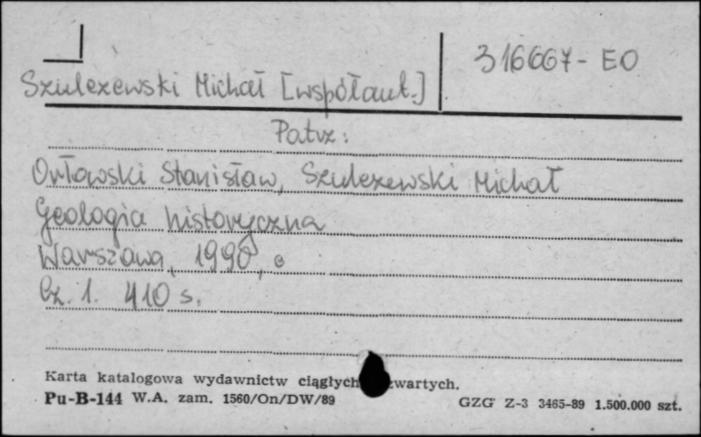 316667-EO
Szulczewski Michał [współaut.]
Patrz:
Orłowski Stanisław, Szulczewski Michał
Geologia historyczna
Warszawa, 1990,
Cz. 1. 410 s.
Karta katalogowa wydawnictw ciągłych zwartych.
Pu-B-144 W.A. zam. 1560/On/DW/89
GZG Z-3 3465-89 1.500.000 szt.